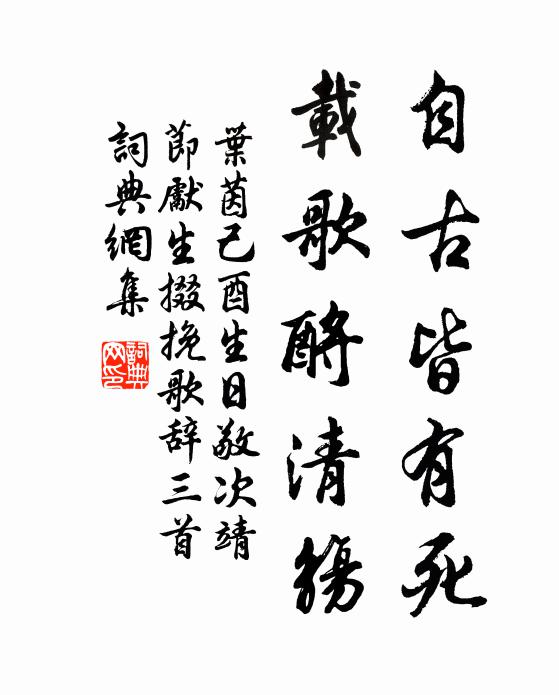 自古皆有死
載歌酹清觴
葉茵己酉生日敬次靖
節獻生掇挽歌辞三首
詞典網集
詞典网印